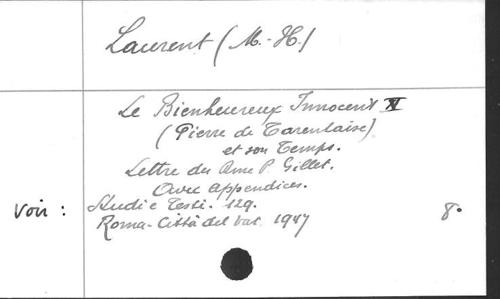 Laurent (M.-H.)
Le Bienheureux Innocent V
(Pierre de Tarentaise)
et son Temps.
Lettre du Rme P. Gillet.
Avec appendices.
Voir : Studi e Testi. 129. 8°
Roma - Città del Vat. 1947